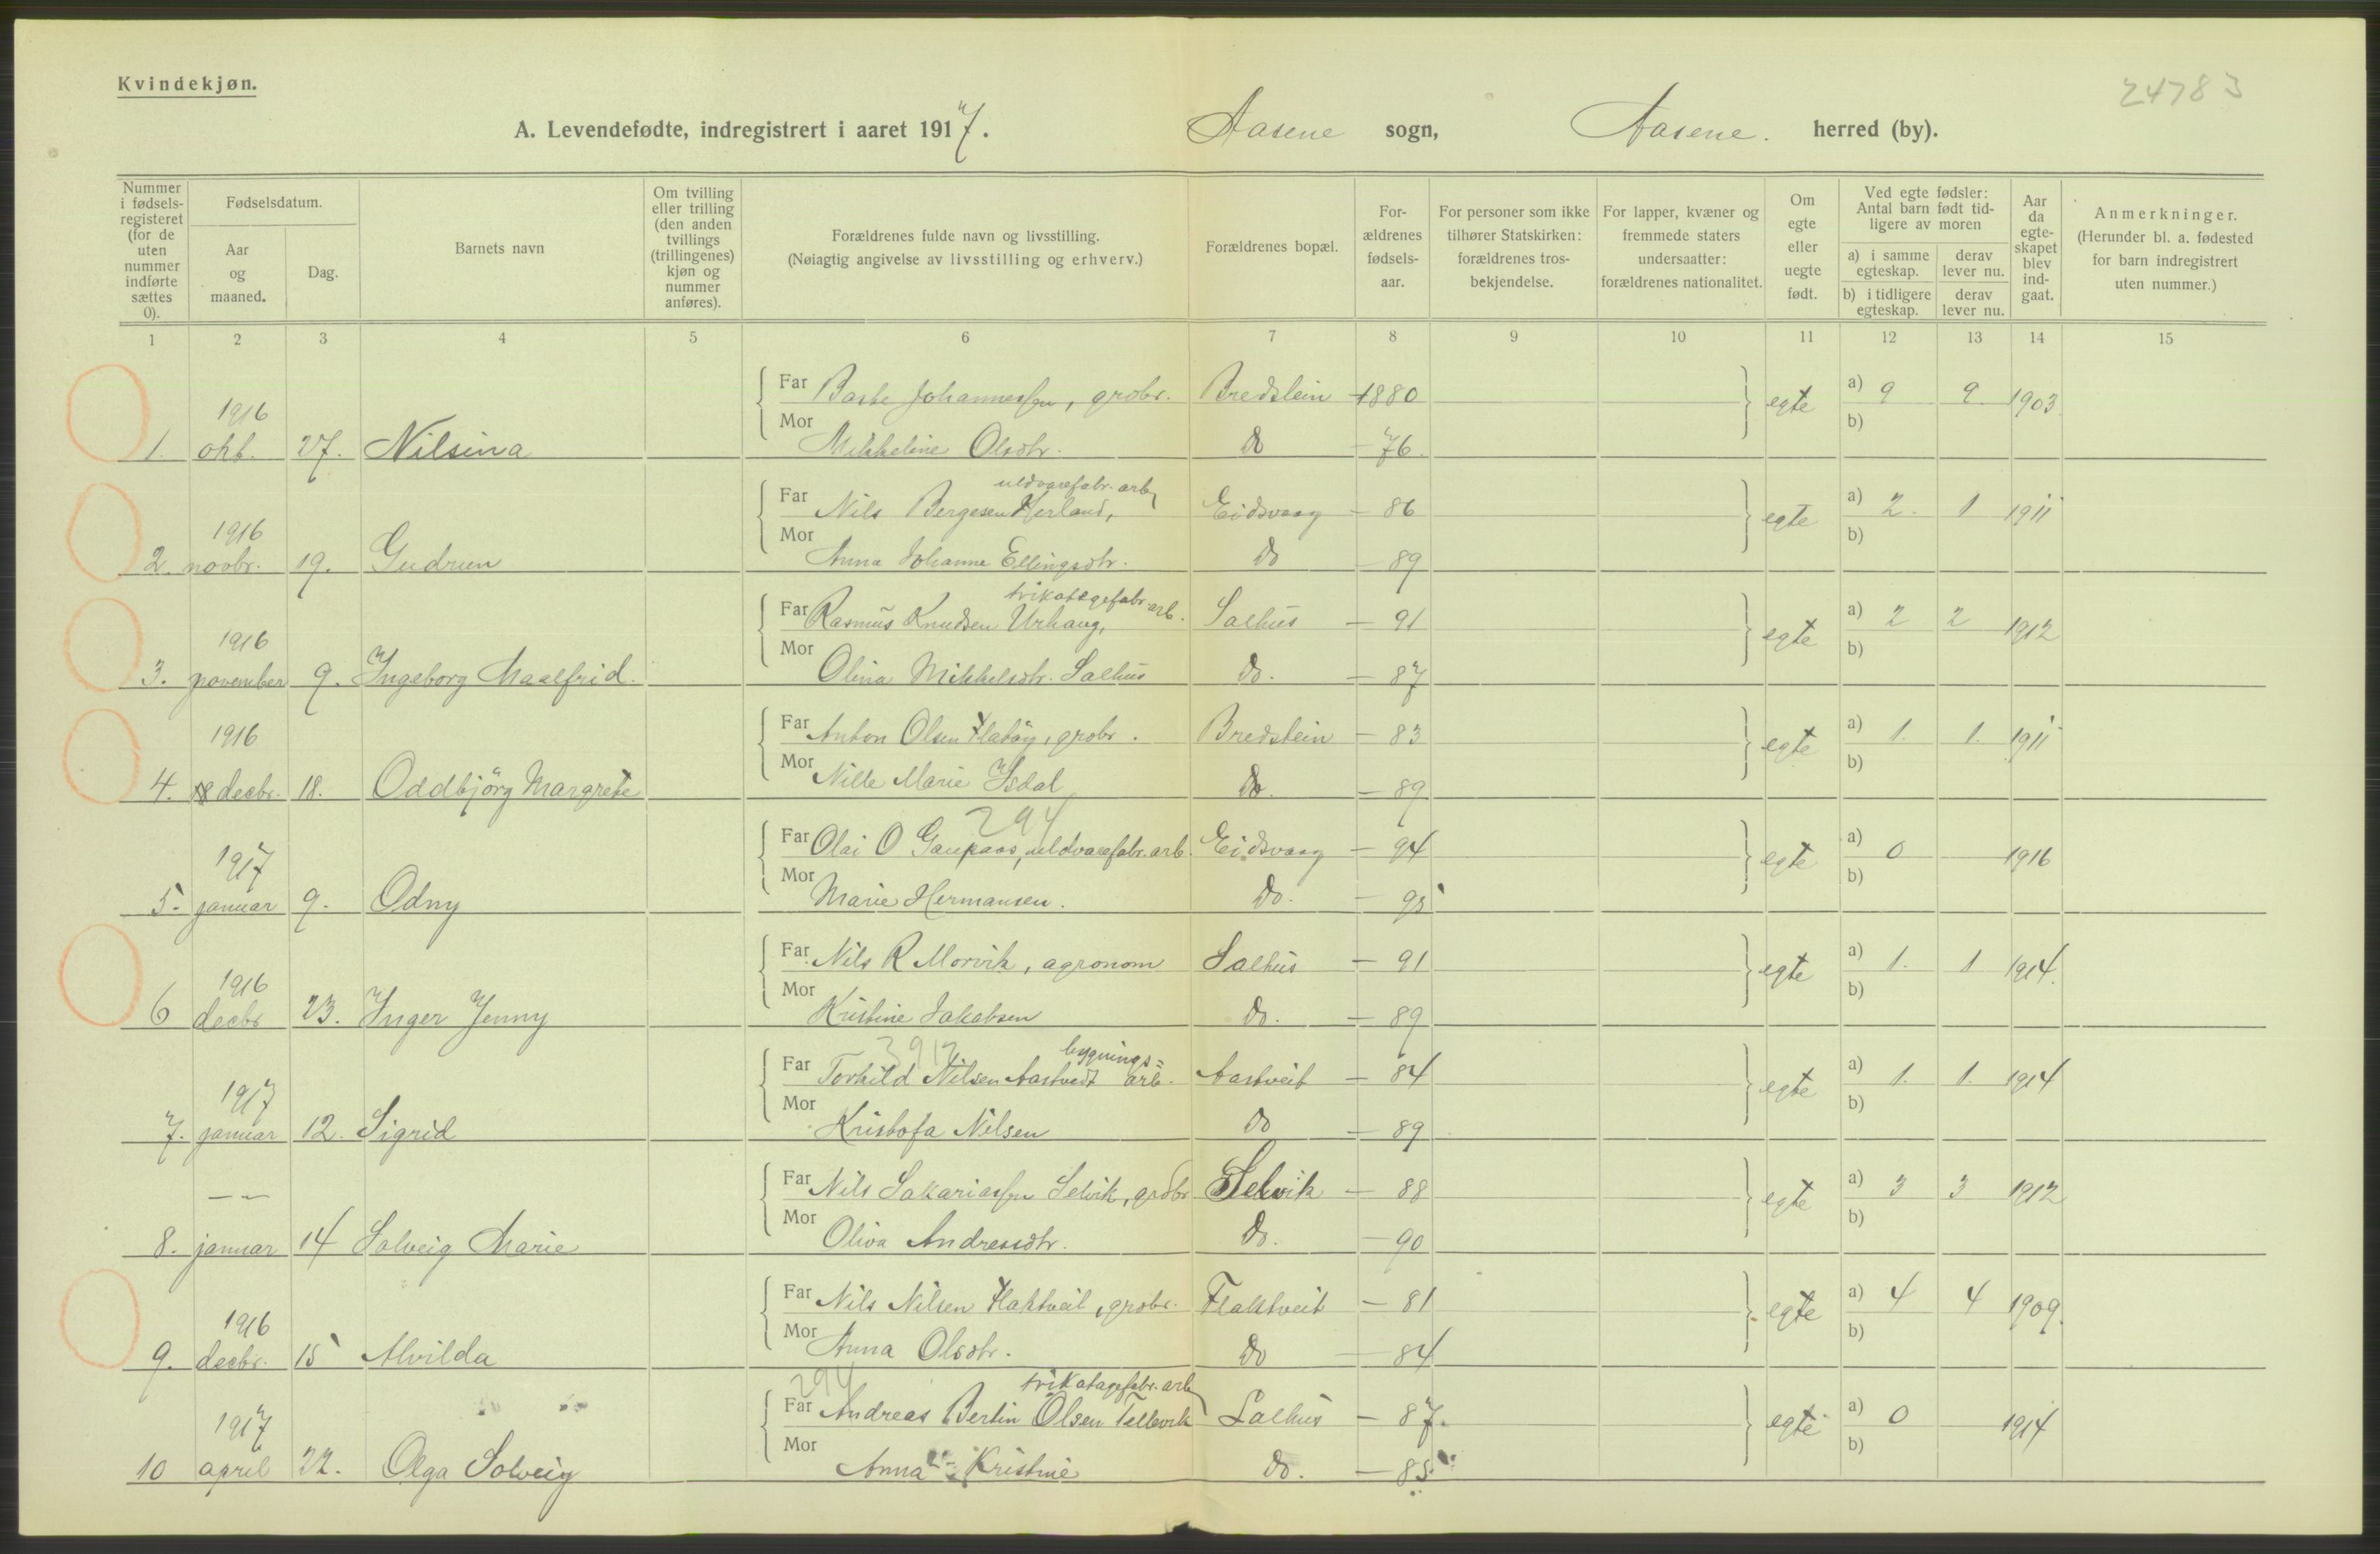 Kvindekjøn.
24783
A. Levendefødte, indregistrert i aaret 1917. Aasene sogn, Aasene. herred (by).
Nummer i fødsels-registeret (for de uten nummer indførte sættes 0).
Fødselsdatum.
Aar og maaned.
Dag.
Barnets navn
Om tvilling eller trilling (den anden tvillings (trillingenes) kjøn og nummer anføres).
Forældrenes fulde navn og livsstilling.
(Nøiagtig angivelse av livsstilling og erhverv.)
Forældrenes bopæl.
For-ældrenes fødsels-aar.
For personer som ikke tilhører Statskirken: forældrenes tros-bekjendelse.
For lapper, kvæner og fremmede staters undersaatter: forældrenes nationalitet.
Om egte eller uegte født.
Ved egte fødsler: Antal barn født tid-ligere av moren
a) i samme egteskap.
derav lever nu.
b) i tidligere egteskap.
derav lever nu.
Aar da egte-skapet blev ind-gaat.
Anmerkninger.
(Herunder bl. a. fødested for barn indregistrert uten nummer.)
1 2 3 4 5 6 7 8 9 10 11 12 13 14 15
1916
Far Johannessen, grdbr. Bredstein 1880 egte a) 9 9 1903
Mor b)
1. okt. 27. Nilsina Mikkeline Olsdtr. do - 76.
uldvarefabr. arb
1916
Far Nils Bergesen Herland, Eidsvaag - 86 egte a) 2. 1 1911
Mor b)
2. novbr. 19. Gudrun Anna Johanne Ellingsdtr. do - 89
trikotagefabr. arb.
1916
Far Rasmus Knudsen Urhaug, Salhus - 91 egte a) 2 2 1912
Mor b)
3. november 9. Ingeborg Maalfrid. Olina Mikkelsdtr. Salhus do. - 87
1916
Far Anton Olsen Flatöy, grdbr. Bredstein - 83 egte a) 1. 1. 1911
Mor b)
4. decbr. 18. Oddbjörg Margrete Nille Marie Isdal do. - 89
294
1917
Far Olai O Gaupaas, uldvarefabr. arb. Eidsvaag - 94 egte a) 0 1916
Mor b)
5. januar 9. Odny Marie Hermansen. do. - 95
1916
Far Nils R Morvik, agronom Salhus - 91 egte a) 1. 1 1914.
Mor b)
6 decbr 23. Inger Jenny Kristine Jakobsen do. - 89
bygnings=
1917
Far Torkild Nilsen Aastvedt arb. Aastveit - 84 egte a) 1. 1. 1914
Mor b)
7. januar 12. Sigrid Kristofa Nilsen do - 89
Far Nils Sakariassen Selvik, grdbr Selvik - 88 egte a) 3 3 1912
Mor b)
8. januar 14 Solveig Marie Oliva Andreasdtr. do. - 90
1916
Far Nils Nilsen Flaktveit, grdbr. Flaktveit - 81 egte a) 4 4 1909.
Mor b)
9. decbr. 15 Alvilda Anna Olsdtr. do - 84
294 trikotagefabr. arb
1917
Far Andreas Bertin Olsen Tellevik Salhus - 87. egte a) 0 1914
Mor b)
10 april 22. Olga Solveig Anna Kristine do. - 85